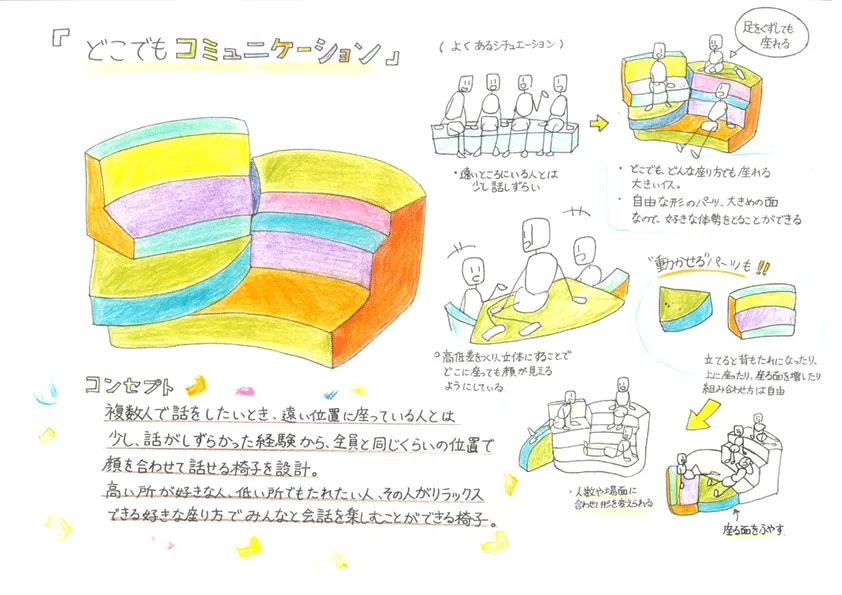 『どこでもコミュニケーション』
(よくあるシチュエーション)
足をくずしても
座れる
・遠いところにいる人とは
少し話しずらい
・どこでも、どんな座り方でも座れる
大きいイス。
・自由な形のパーツ、大きめの面
なので、好きな体勢をとることができる
"動かせる"パーツも!!
。高低差をつくり、立体にすることで
どこに座っても顔が見える
ようにしている
立てると背もたれになったり、
上に座ったり、座る面を増したり
組み合わせ方は自由
・人数や場面に
合わせて形を変えられる
座る面をふやす
コンセプト
複数人で話をしたいとき、遠い位置に座っている人とは
少し、話がしずらかった経験から、全員と同じくらいの位置で
顔を合わせて話せる椅子を設計。
高い所が好きな人、低い所でもたれたい人、その人がリラックス
できる好きな座り方でみんなと会話を楽しむことができる椅子。